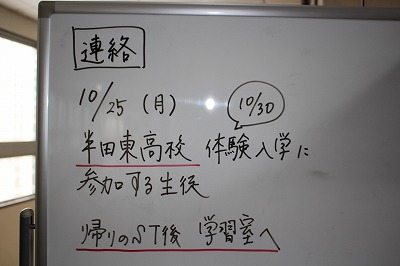 連絡
10/25（月）
10/30
半田東高校 体験入学に
参加する生徒
帰りのST後 学習室へ